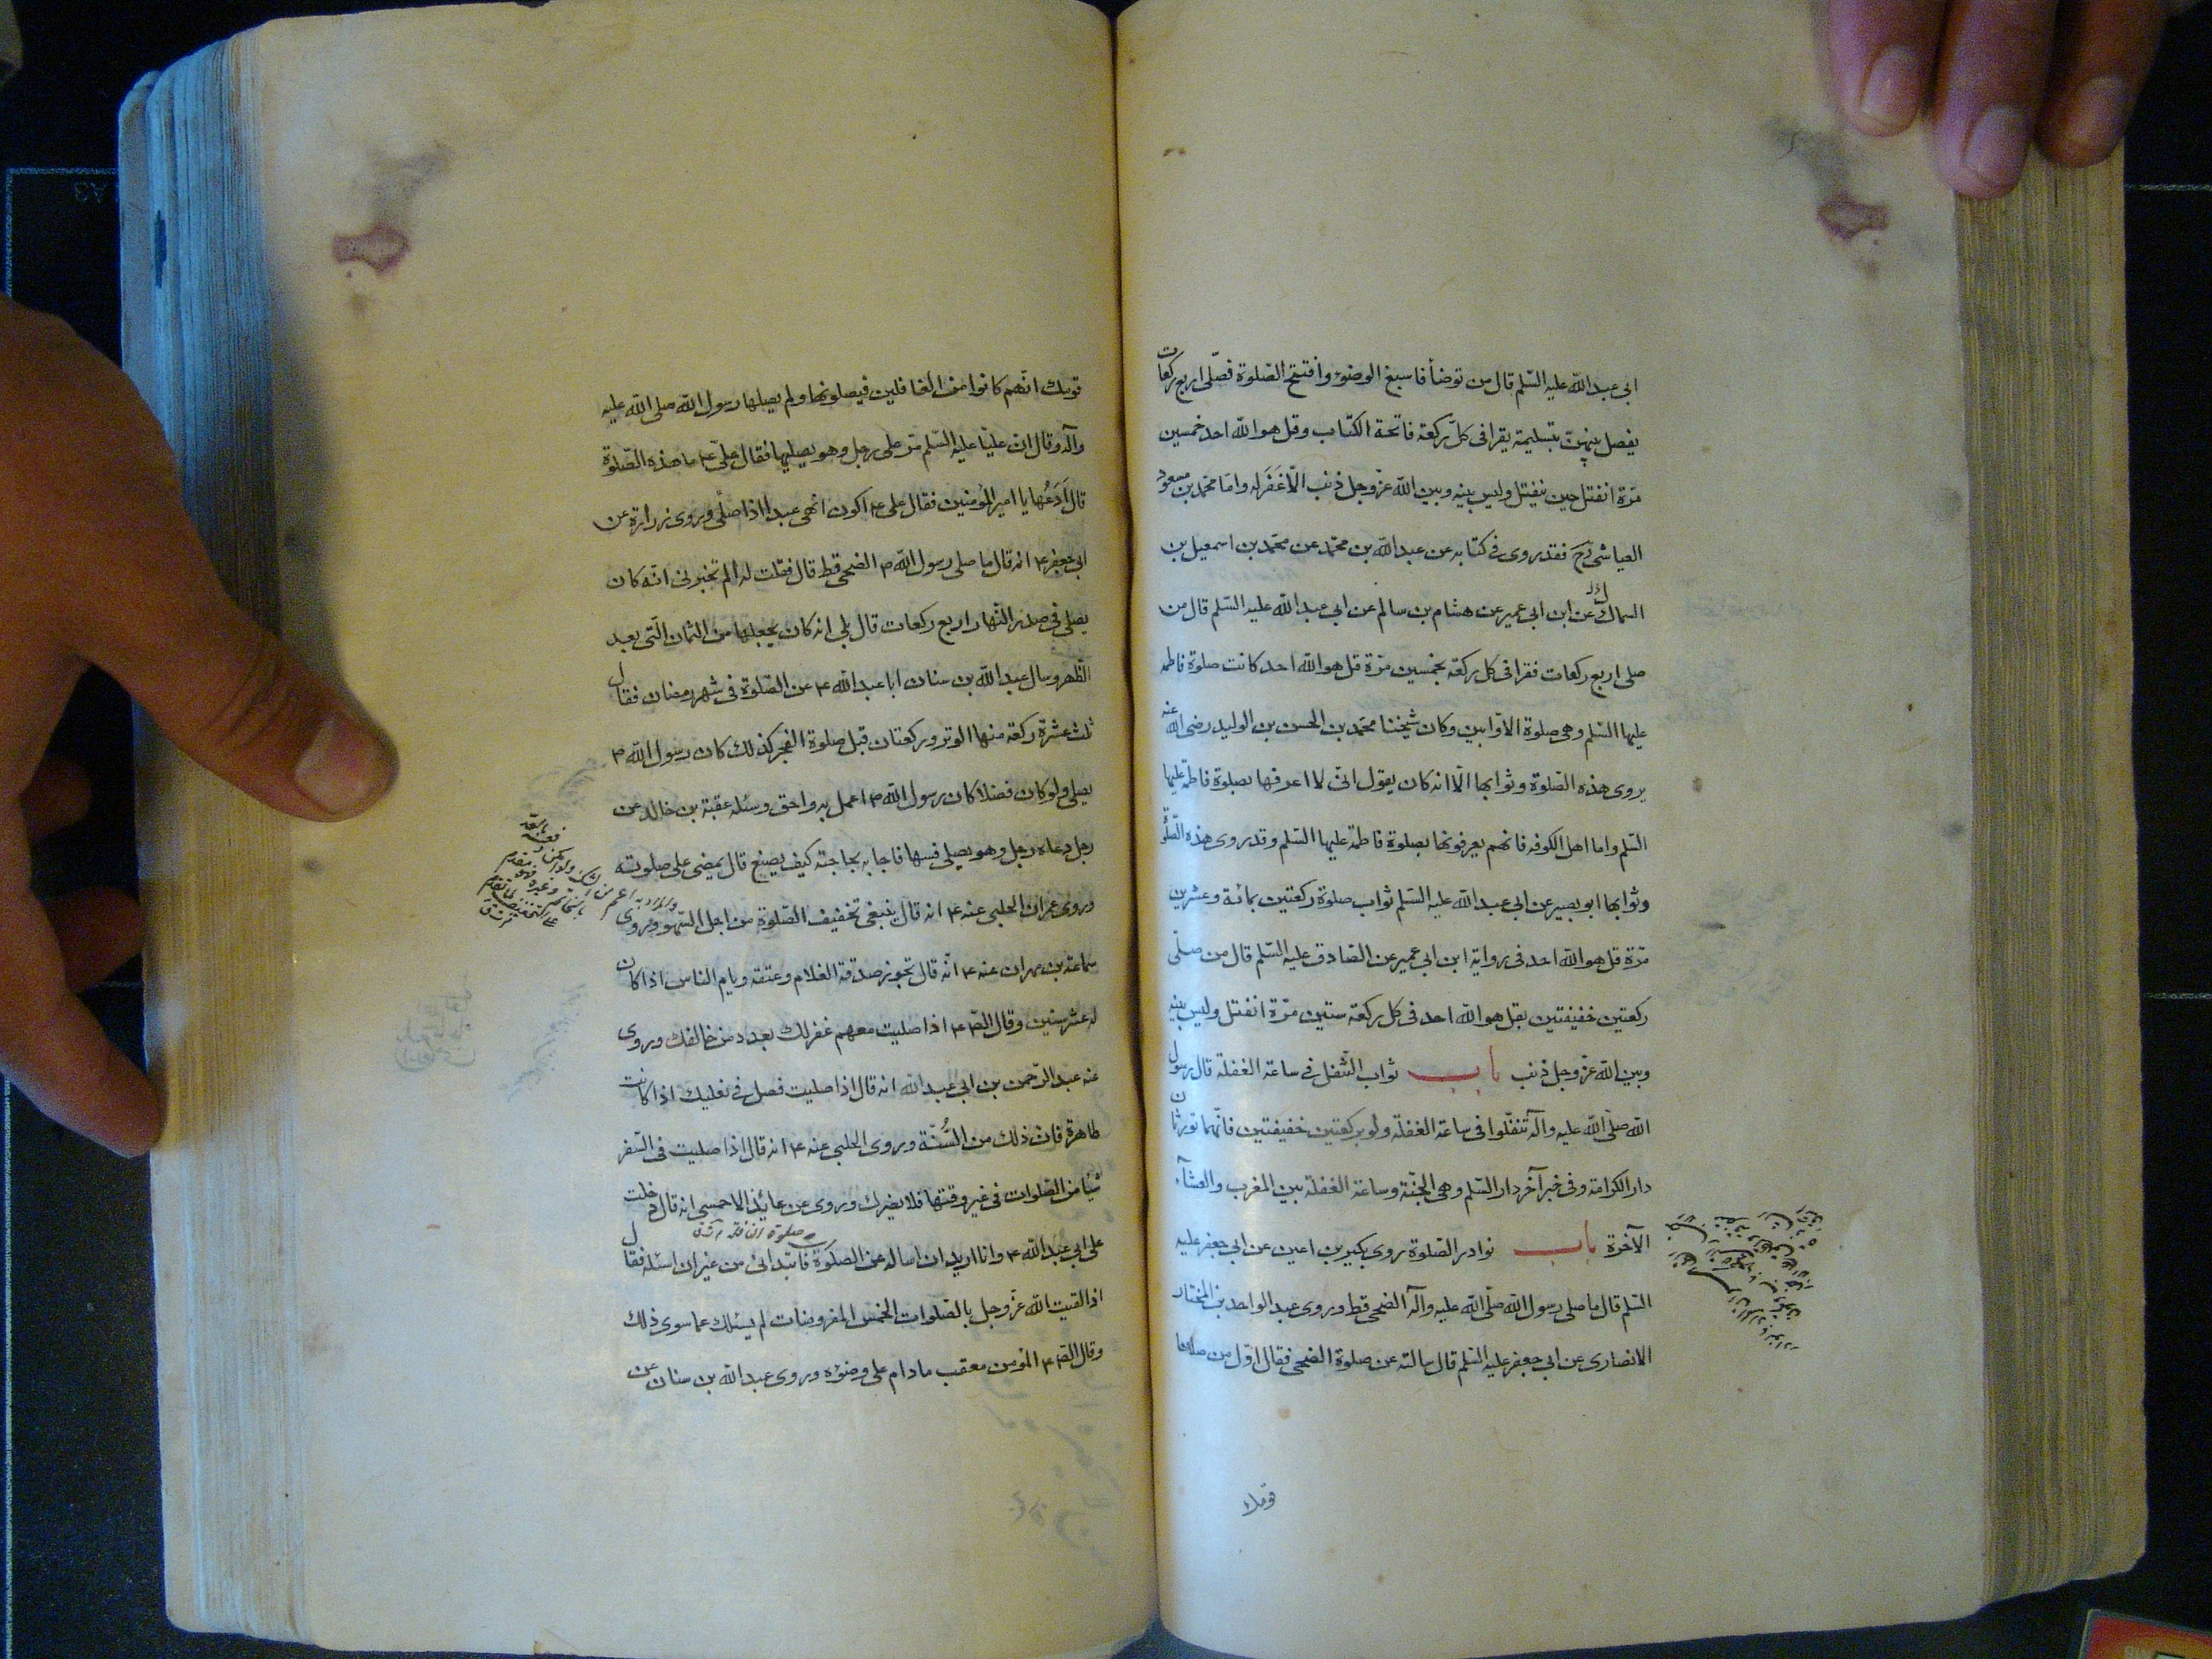 ابى عبد اللّه عليه السّلم قال من توضأ فاسبغ الوضوء وافتتح الصّلوة فصّلى اربع ركعات
يفصل بينهنّ بتسليمة يقرا فى كلّ ركعة فاتحة الكتاب وقل هو اللّه احد خمسين
مرّة انفتل حين ينفتل وليس بينه وبين اللّه عزّ وجل ذنب الّا غَفَرَ له وامّا محمّد بن مسعود
العياشى رَحَ فقد روى فى كتابه عن عبد اللّه بن محمّد عن محمّد بن اسمعيل بن
السماك عن ابن ابى عمير عن هشام بن سالم عن ابى عبد اللّه عليه السّلم قال من
صلى اربع ركعات فقرا فى كل ركعة بخمسين مرّة قل هو اللّه احد كانت صلوة فاطمه
عليها السّلم وهى صلوة الاوّابين وكان شيخنا محمّد بن الحسن بن الوليد رضى اللّه عنه
يروى هذه الصّلوة وثوابها الّا انه كان يقول انّى لا اعرفها بصلوة فاطمة عليها
السّلم واما اهل الكوفه فانهم يعرفونها بصلوة فاطمة عليها السّلم وقد روى هذه الصّلوة
وثوابها ابو بصير عن ابى عبد اللّه عليه السّلم ثواب صلوة ركعتين بمائة وعشرين
مرّة قل هو اللّه احد فى رواية ابن ابى عمير عن الصّادق عليه السّلم قال من صلّى
ركعتين خفيفتين بقل هو اللّه احد فى كل ركعة ستين مرّة انفتل وليس بينه
وبين اللّه عزّ وجل ذنب باب ثواب التّنفل فى ساعة الغفلة قال رسول
اللّه صلّى اللّه عليه وآله تنفّلوا فى ساعة الغفلة ولو بركعتين خفيفتين فانّهما تورثان
دار الكرامة وفى خبر آخر دار السّلم وهى الجنّة وساعة الغفلة بين المغرب والعشآء
الآخرة باب نوادر الصّلوة روى بكير بن اعين عن ابى جعفر عليه
السّلم قال ما صلى رسول اللّه صلّى اللّه عليه وآله الضحى قط وروى عبد الواحد بن المختار
الانصارى عن ابى جعفر عليه السّلم قال سالته عن صلوة الضحى فقال اوّل من صلاها
قومك
قومك انّهم كانوا من الغافلين فيصلونها ولم يصلها رسول اللّه صلى اللّه عليه
وآله وقال انّ عليّا عليه السّلم مرّ على رجل وهو يصليها فقال علىّ ع ما هذه الصّلوة
قال اَدَعُها يا امير المؤمنين فقال على ع اكون انهى عبدا اذا صلّى وروى زرارة عن
ابى جعفر ع انه قال ما صلى رسول اللّه ص الضحى قط قال فقلت له الم تخبرنى انّه كان
يصلى فى صدر النّهار اربع ركعات قال بلى انه كان يجعلها من الثمان الّتى بعد
الظّهر وسال عبد اللّه بن سنان ابا عبد اللّه ع عن الصّلوة فى شهر رمضان فقال
ثلث عشرة ركعة منها الوتر وركعتان قبل صلوة الفجر كذلك كان رسول اللّه ص
يصلى ولو كان فضلا كان رسول اللّه ص اعمل به واحق وسئله عقبة بن خالد عن
رجل دعاه رجل وهو يصلى فسها فاجابه بحاجته كيف يصنع قال يمضى على صلوته
وروى عمران الحلبى عنه ع انه قال ينبغى تخفيف الصّلوة من اجل السّهو وروى
سماعة بن مهران عنه ع انّه قال تجوز صدقة الغلام وعتقه ويام الناس اذا كان
له عشر سنين وقال الصّ ع اذا صليت معهم غفر لك بعدد من خالفك وروى
عنه عبد الرّحمن بن ابى عبد اللّه انه قال اذا صليت فصل فى نعليك اذا كانت
طاهرة فان ذلك من السُّنّة وروى الحلبى عنه ع انه قال اذا صليت فى السّفر
شيئا من الصّلوات فى غير وقتها فلا يضرك وروى عن عائذ الاحمسى انه قال دخلت
على ابى عبد اللّه ع وانا اريد ان اساله عن الصلوة فابتدائى من غير ان اسئله فقال
اذا لقيت اللّه عزّ وجل بالصّلوات الخمس المفروضات لم يسئلك عما سوى ذلك
وقال الصّ ع المؤمن معقب ما دام على وضوئه وروى عبد اللّه بن سنان عن